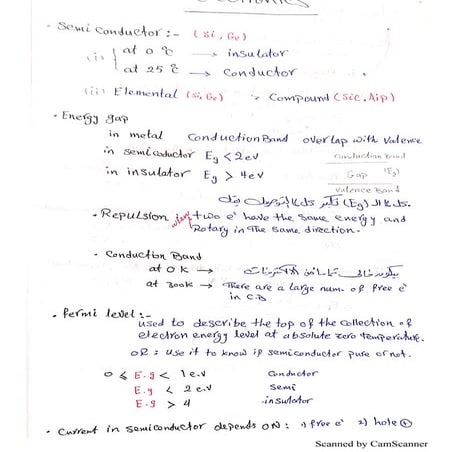 - Semi conductor :- (Si, Ge)
(i) at 0 °c → insulator
at 25 °c → Conductor
(ii) Elemental (Si, Ge) Compound (Sic, Aip)
- Energy gap
in metal Conduction Band over lap with Valence
in semiconductor Eg < 2 ev
Conduction Band
Gap (Eg)
Valence Band
in insulator Eg > 4ev
كل ما الـ (Eg)
- Repulsion when two e⁻ have the same energy and
Rotary in the same direction.
- Conduction Band
at 0 k →
at 300k → There are a large num. of free e⁻
in C.B
- fermi level :-
used to describe the top of the collection of
electron energy level at absolute zero temperature.
OR: use it to know if semiconductor pure or not.
0 ≤ E.g < 1 e.v Conductor
E.g < 2 e.v Semi
E.g > 4 insulator
- Current in semiconductor depends ON: 1) free e⁻ 2) hole ⊕
Scanned by CamScanner